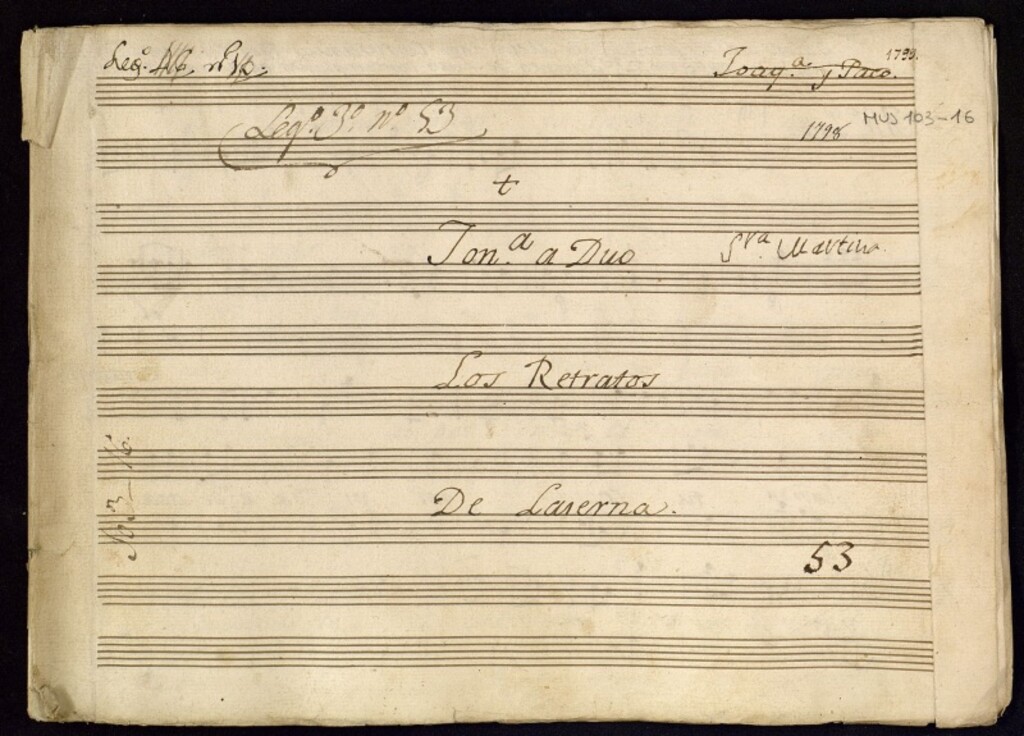 Leg.º
Joaq.ª y Paco. 1798.
Leg.º 3.º n.º 53
1798
MUS 103-16
+
Ton.ª a Duo
Sra Martina
Los Retratos
De Laserna.
53
103-16.